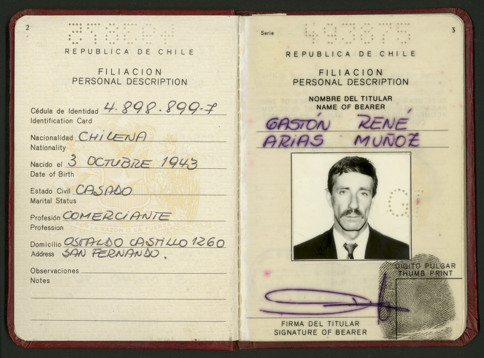 2
REPUBLICA DE CHILE
FILIACION
PERSONAL DESCRIPTION
Cédula de Identidad 4.898.899-7
Identification Card
Nacionalidad CHILENA
Nationality
Nacido el 3 OCTUBRE 1943
Date of Birth
Estado Civil CASADO
Marital Status
Profesión COMERCIANTE
Profession
Domicilio OSVALDO CASTILLO 1260
Address SAN FERNANDO.
Observaciones
Notes
Serie
3
REPUBLICA DE CHILE
FILIACION
PERSONAL DESCRIPTION
NOMBRE DEL TITULAR
NAME OF BEARER
GASTÓN RENÉ
ARIAS MUÑOZ
DIGITO PULGAR
THUMB PRINT
FIRMA DEL TITULAR
SIGNATURE OF BEARER